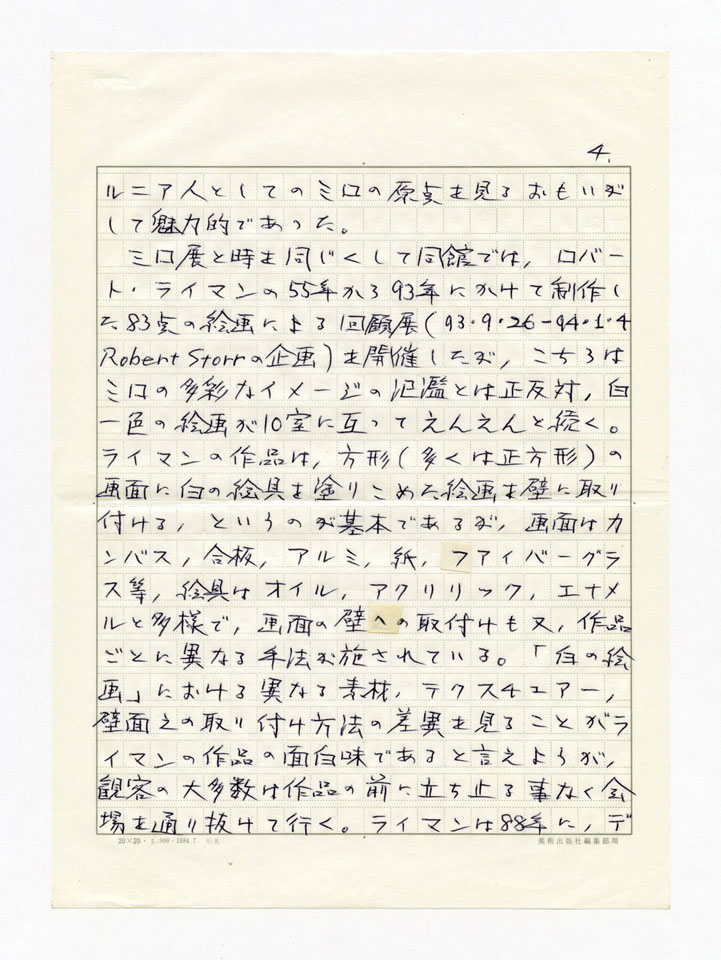 4.
ルニア人としてのミロの原点を見るおもいが
して魅力的であった。
ミロ展と時を同じくして同館では，ロバー
ト・ライマンの55年から93年にかけて制作し
た83点の絵画による回顧展（93・9・26－94・1・4
Robert Storrの企画）を開催したが，こちらは
ミロの多彩なイメージの氾濫とは正反対，白
一色の絵画が10室に亙ってえんえんと続く。
ライマンの作品は，方形（多くは正方形）の
画面に白の絵具を塗りこめた絵画を壁に取り
付ける，というのが基本であるが，画面はカ
ンバス，合板，アルミ，紙，ファイバーグラ
ス等，絵具はオイル，アクリリック，エナメ
ルと多様で，画面の壁への取付けも又，作品
ごとに異なる手法が施されている。「白の絵
画」における異なる素材，テクスチュアー，
壁面之の取り付け方法の差異を見ることがラ
イマンの作品の面白味であると言えようが，
観客の大多数は作品の前に立ち止る事なく会
場を通り抜けて行く。ライマンは88年に，デ
20×20・5,000・1984.7
美術出版社編集部用